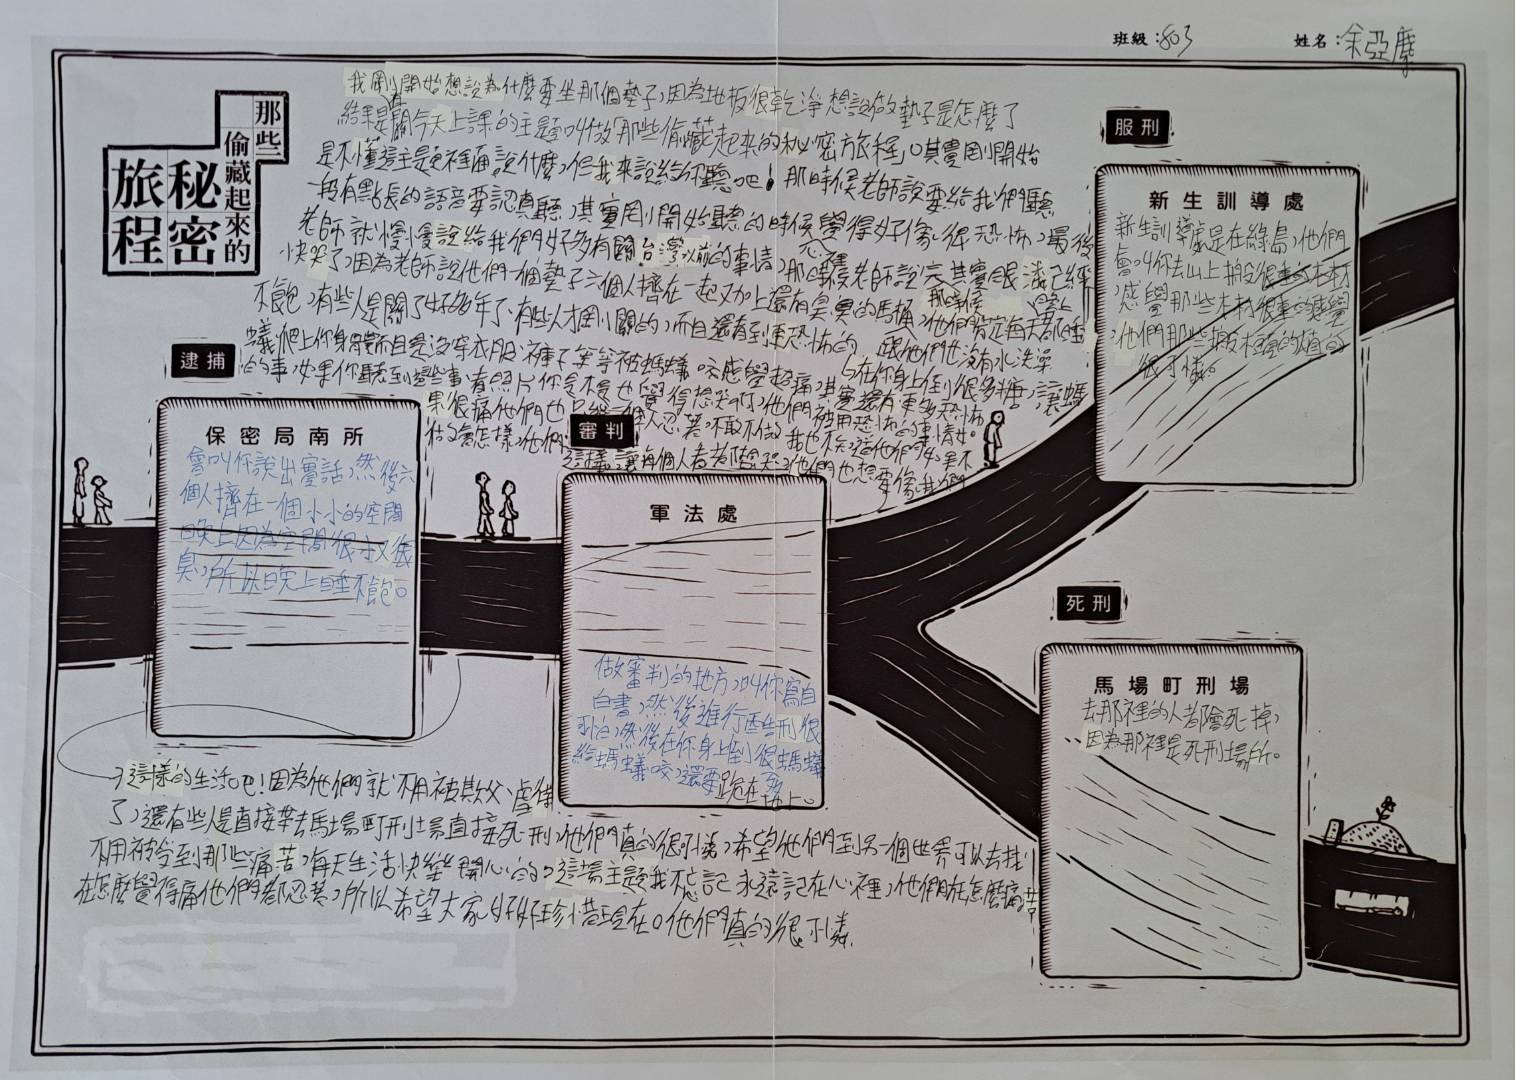 班級：803
姓名：余亞
那些
偷藏起來的
秘密
旅程
我剛開始想說為什麼要坐那個墊子，因為地板很乾淨想說做墊子是怎麼了
結果是有關今天上課的主題叫做那些偷藏起來的秘密旅程，其實剛開始
是不懂這主題裡面說什麼，但我來說給你聽吧！那時候老師說要給我們聽
一段有點長的語音要認真聽，其實剛開始聽的時候覺得好像很恐怖，最後
老師就慢慢說給我們好多有關台灣以前的事情，那時候老師說完其實眼淚已經
快哭了，因為老師說他們一個墊子六個人擠在一起又加上還有臭臭的馬桶，他們肯定每天都睡
不飽，有些人是關了好多年了，有些人才剛關的，而且還有到更恐怖的 跟他們也沒有水洗澡
在你身上倒很多糖，讓螞
蟻爬上你身體而且是沒穿衣服、褲子等等被螞蟻咬感覺超痛，其實還有更多恐怖
的事，如果你聽到這些事有照片你是不是也覺得想哭啊，他們被用恐怖的事情。
果很痛他們也只能一個人忍著，不敢不做我也不知道他們如果不
做會怎樣，他們
這樣讓每個人看都會哭，他們也想要像我們
，這樣的生活吧！因為他們就不用被欺父、虐待
了，還有些人是直接帶去馬場町刑場直接死刑，他們真的很可憐，希望他們到另一個世界可以去找
不用被令到那些痛苦，每天生活快樂開心的。這場主題我不忘記永遠記在心裡，他們在怎麼痛苦
在怎麼覺得痛他們都忍著，所以希望大家好好珍惜現在。他們真的很可憐
逮捕
保密局南所
會叫你說出實話，然後六
個人擠在一個小小的空間
晚上因為空間很小又很
臭，所以晚上睡不飽。
審判
軍法處
做審判的地方，叫你寫自
白書，然後進行些刑很
可怕，然後在你身上倒很螞蟻
給螞蟻咬，還要跪在地上。
服刑
新生訓導處
新生訓導處是在綠島，他們
會叫你去山上搬很重的木材
，感覺那些木材很重感覺
，他們那些搬很重的真的
很可憐。
死刑
馬場町刑場
去那裡的人都會死掉，
因為那裡是死刑場所。